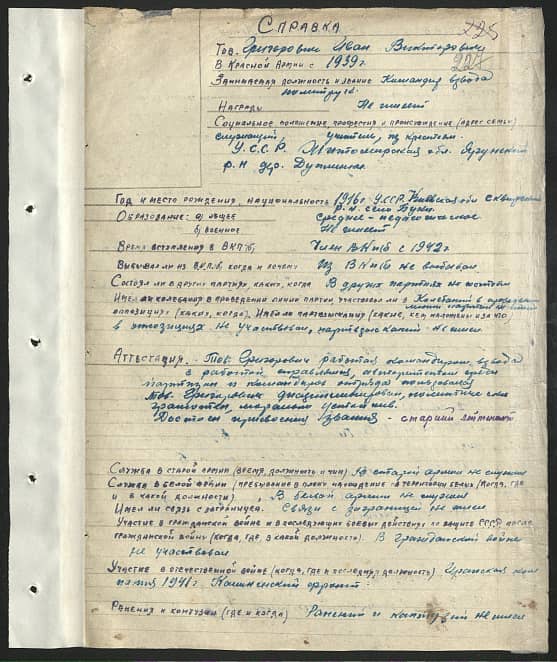 Справка
225
Тов. Григорович Иван Викторович
224
В Красной Армии с 1939 г.
Занимаемая должность и звание Командир взвода
политрук.
Награды Не имеет
Социальное положение профессия и происхождение (адрес семьи)
служащий, учитель, из крестьян.
У.С.С.Р. Житомирская обл.
р-н дер.
Год и место рождения, национальность 1916 г. УССР. Киевская обл.
р-н село Буки
Образование: а) общее среднее-педагогическое
б) военное Не имеет
Время вступления в ВКП(б) Член ВКП(б) с 1942 г.
Выбывал ли из ВКП(б), когда и почему Из ВКП(б) не выбывал
Состоял ли в других партиях, каких, когда В других партиях не состоял
Имел ли колебания в проведении линии партии, участвовал ли в Колебаний в проведении
линии партии не имел
оппозициях (каких, когда), имел ли партвзыскания (какие, кем наложены и за что)
в оппозициях не участвовал, партвзысканий не имел
Аттестация. - Тов. Григорович работая командиром взвода
с работой справлялся, авторитетом среди
партизан и командиров отряда пользовался
тов. Григорович дисциплинирован, политически
грамотен, морально устойчив.
Достоин присвоения звания - старший лейтенант
Служба в старой армии (время, должность и чин) В старой армии не служил
Служба в белой армии (пребывание в плену нахождение на территории белых (когда, где
и в какой должности) В белой армии не служил
Имел ли связь с заграницей. Связи с заграницей не имел
Участие в гражданской войне и в последующих боевых действиях по защите СССР после
гражданской войны (когда, где, в какой должности). В Гражданской войне
не участвовал
Участие в отечественной войне (когда, где и последняя должность)
1941 г. фронт.
Ранения и контузии (где и когда) Ранений и контузий не имел